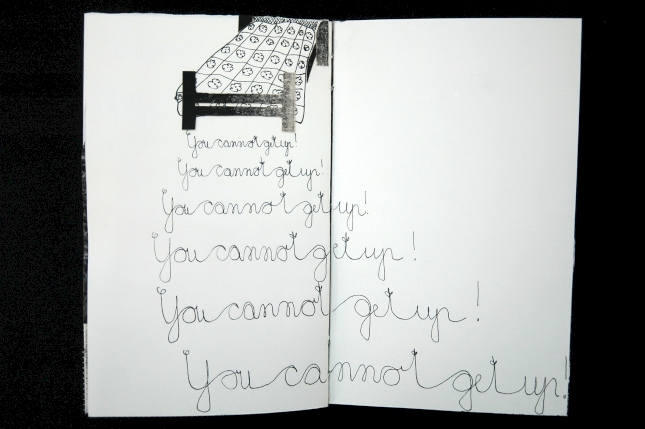 You cannot get up!
You cannot get up!
You cannot get up!
You cannot get up!
You cannot get up!
You cannot get up!